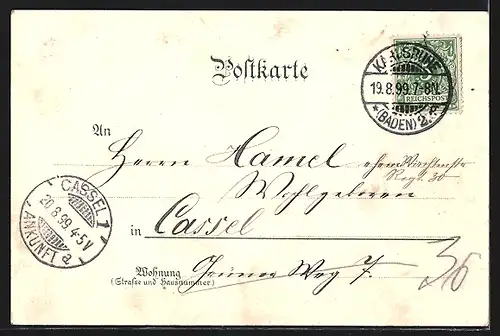 Postkarte
KARLSRUHE
19.8.99.7-8N.
* (BADEN) 2.
5
REICHSPOST
An
Herrn Hamel
Wohlgeboren
in Cassel
CASSEL 1
20.8.99 4-5V
ANKUNFT
a
Wohnung Grüner Weg 7.
(Strasse und Hausnummer)
36